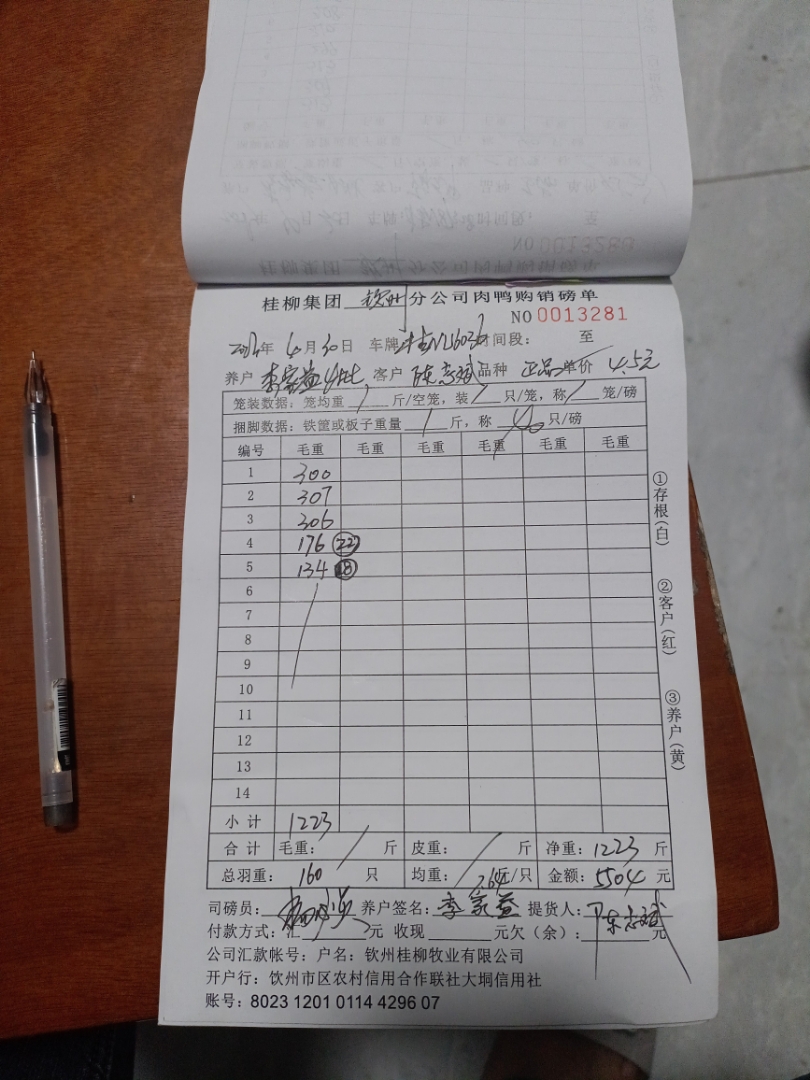 桂柳集团 钦州 分公司肉鸭购销磅单
NO 0013281
年 6 月 30 日 车牌 时间段： 至
养户 李家益 客户 陈志斌 品种 正品 单价 4.5元
笼装数据：笼均重 / 斤/空笼，装 / 只/笼，称 / 笼/磅
捆脚数据：铁筐或板子重量 / 斤，称 40 只/磅
编号 毛重 毛重 毛重 毛重 毛重 毛重
1 300
2 307
3 306
4 176 22
5 134 18
6
7
8
9
10
11
12
13
14
小计 1223
合计 毛重： / 斤 皮重： / 斤 净重：1223 斤
总羽重： 160 只 均重： 7.64斤/只 金额：5504 元
司磅员： 养户签名：李家益 提货人：陈志斌
付款方式：汇 元 收现 元欠（余）： 元
公司汇款帐号：户名：钦州桂柳牧业有限公司
开户行：饮州市区农村信用合作联社大垌信用社
账号：8023 1201 0114 4296 07
①存根(白)
②客户(红)
③养户(黄)